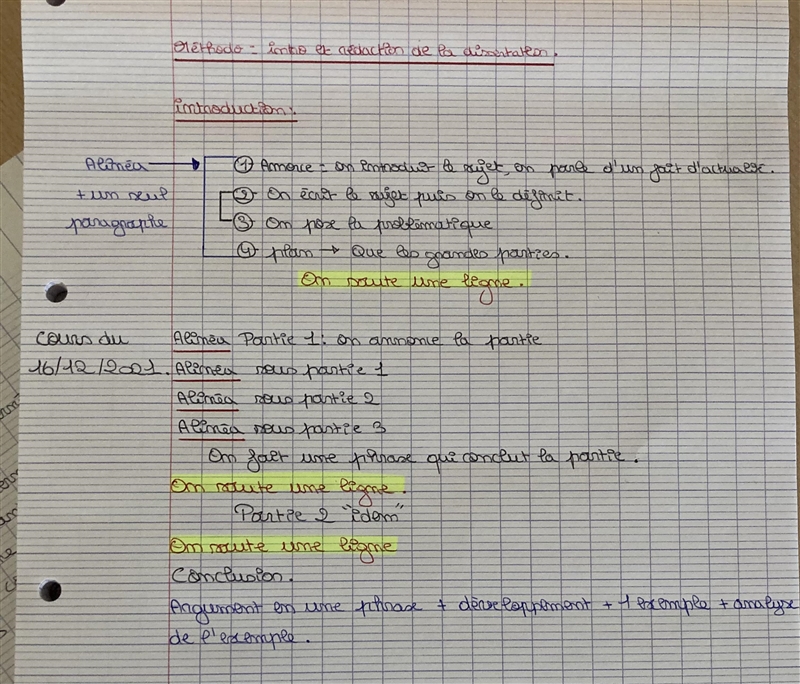 Méthodo = intro et rédaction de la dissertation.
introduction:
Alinéa → ① Amorce = on introduit le sujet, on parle d'un fait d'actualité.
+ un seul ② On écrit le sujet puis on le définit.
paragraphe ③ On pose la problématique
④ plan → Que les grandes parties.
On saute une ligne.
Cours du Alinéa Partie 1: on annonce la partie
16/12/2021. Alinéa sous partie 1
Alinéa sous partie 2
Alinéa sous partie 3
On fait une phrase qui conclut la partie.
On saute une ligne.
Partie 2 "idem"
On saute une ligne
Conclusion.
Argument en une phrase + développement + 1 exemple + analyse
de l'exemple.